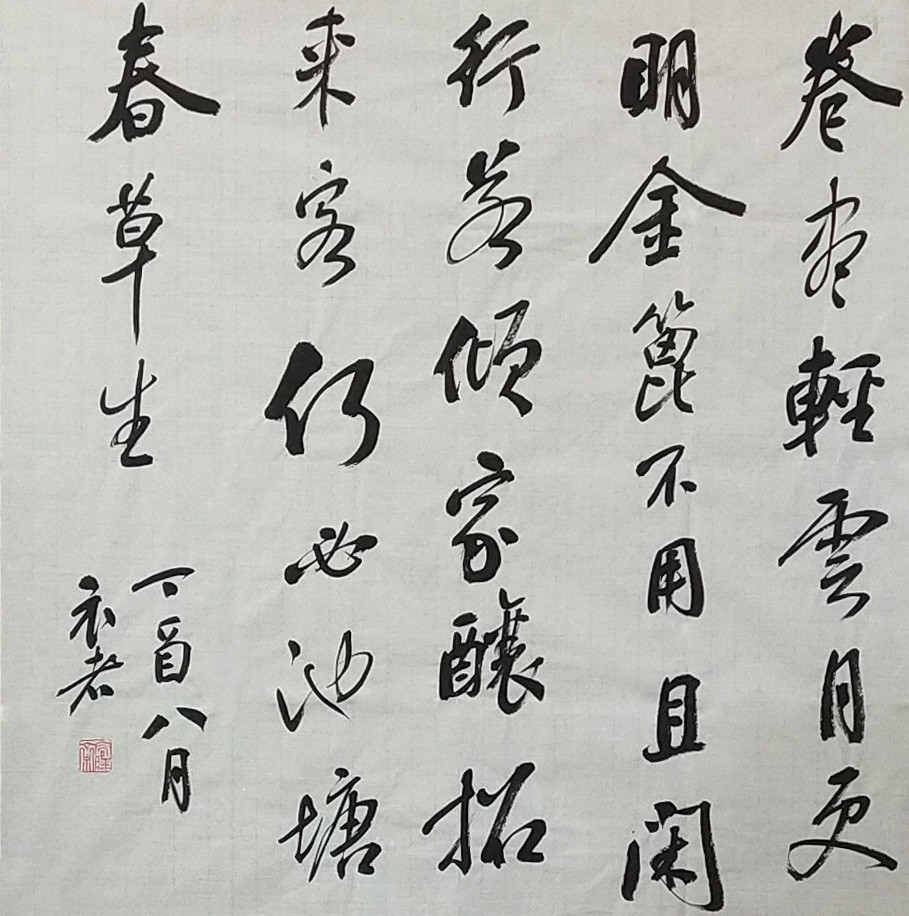 卷尽輕雲月更
明金篦不用且闲
行若傾家釀招
来客何必池塘
春草生
丁酉八月